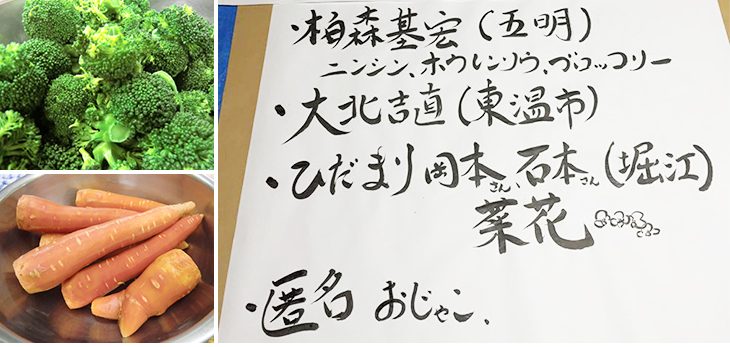 ・柏森基宏(五明)
ニンシン、ホウレンソウ、ブロッコリー
・大北吉直(東温市)
・ひだまり岡本さん、石本さん(堀江)
菜花
・匿名 おじゃこ、